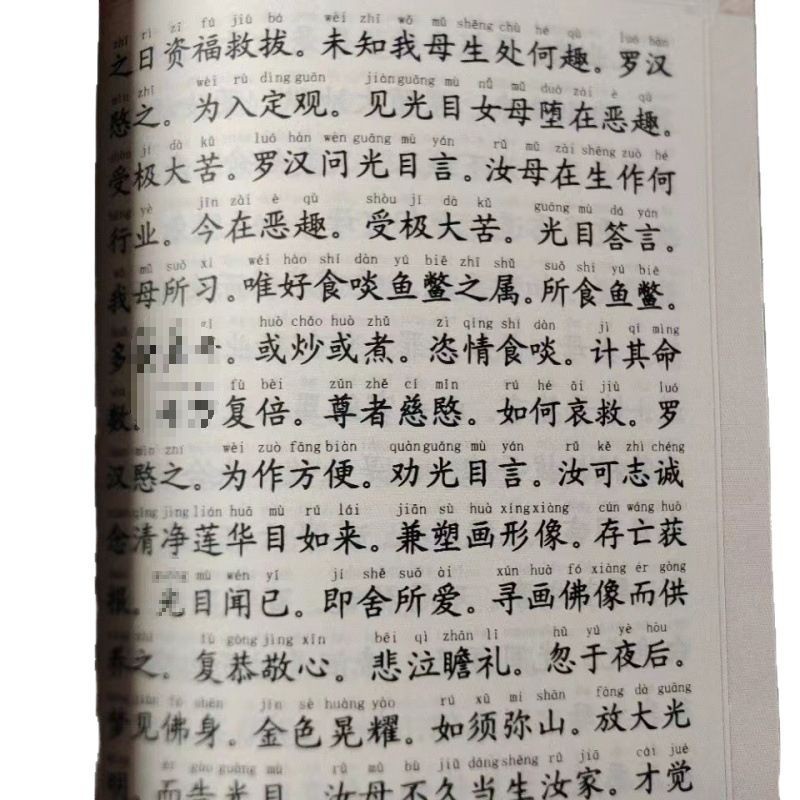 zhī rì zī fú jiù bá wèi zhī wǒ mǔ shēng chù hé qù luó hàn
之日资福救拔。未知我母生处何趣。罗汉
mǐn zhī wèi rù dìng guān jiàn guāng mù nǚ mǔ duò zài è qù
愍之。为入定观。见光目女母堕在恶趣。
shòu jí dà kǔ luó hàn wèn guāng mù yán rǔ mǔ zài shēng zuò hé
受极大苦。罗汉问光目言。汝母在生作何
háng yè jīn zài è qù shòu jí dà kǔ guāng mù dá yán
行业。今在恶趣。受极大苦。光目答言。
wǒ mǔ suǒ xí wéi hào shí dàn yú biē zhī shǔ suǒ shí yú biē
我母所习。唯好食啖鱼鳖之属。所食鱼鳖。
huò chǎo huò zhǔ zì qíng shí dàn jì qí mìng
多。或炒或煮。恣情食啖。计其命
fù bèi zūn zhě cí mǐn rú hé āi jiù luó
数。复倍。尊者慈愍。如何哀救。罗
mǐn zhī wèi zuò fāng biàn quàn guāng mù yán rǔ kě zhì chéng
汉愍之。为作方便。劝光目言。汝可志诚
qīng jìng lián huā mù rú lái jiān sù huà xíng xiàng cún wáng huò
念清净莲华目如来。兼塑画形像。存亡获
mù wén yǐ jí shě suǒ ài xún huà fó xiàng ér gòng
报。光目闻已。即舍所爱。寻画佛像而供
zhī fù gōng jìng xīn bēi qì zhān lǐ hū yú yè hòu
养之。复恭敬心。悲泣瞻礼。忽于夜后。
jiàn fó shēn jīn sè huǎng yào rú xū mí shān fàng dà guāng
梦见佛身。金色晃耀。如须弥山。放大光
ér gào guāng mù rǔ mǔ bù jiǔ dāng shēng rǔ jiā cái jué
明。而告光目。汝母不久当生汝家。才觉